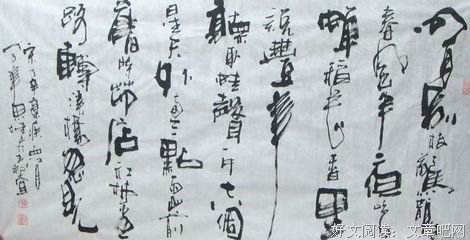 明月別枝驚鵲
清風半夜鳴
蟬稻花香里
說豐年
聽取蛙聲一片七八個
星天外兩三點雨山前
舊時茅店社林邊
路轉溪橋忽見
宋辛棄疾西江月
好文阅读：文章吧网